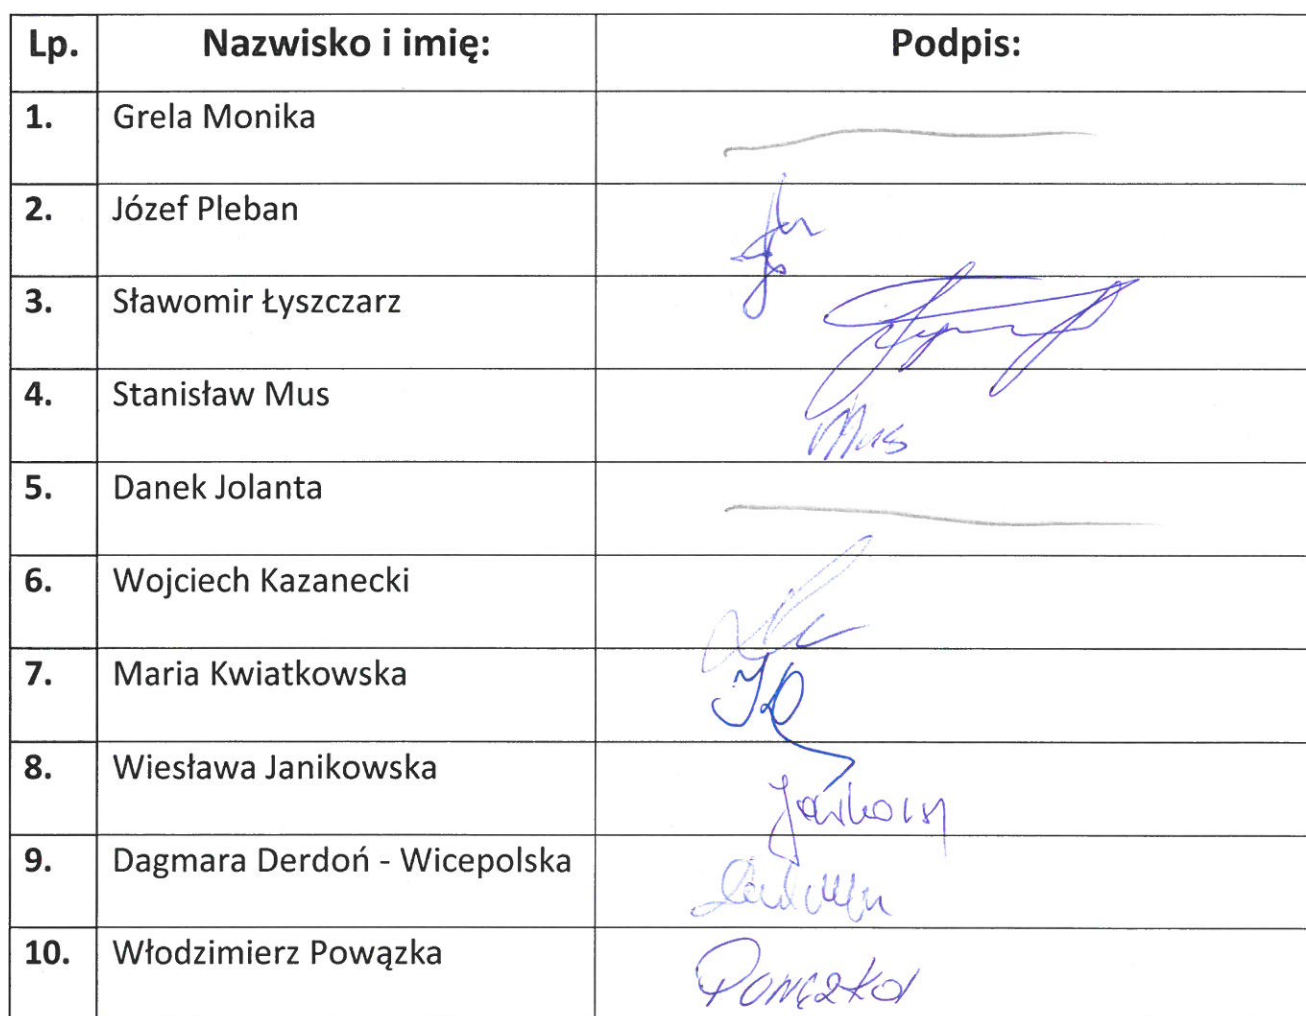 Lp. Nazwisko i imię: Podpis:
1. Grela Monika
2. Józef Pleban
3. Sławomir Łyszczarz
4. Stanisław Mus Mus
5. Danek Jolanta
6. Wojciech Kazanecki
7. Maria Kwiatkowska
8. Wiesława Janikowska
9. Dagmara Derdoń - Wicepolska
10. Włodzimierz Powązka Powązka